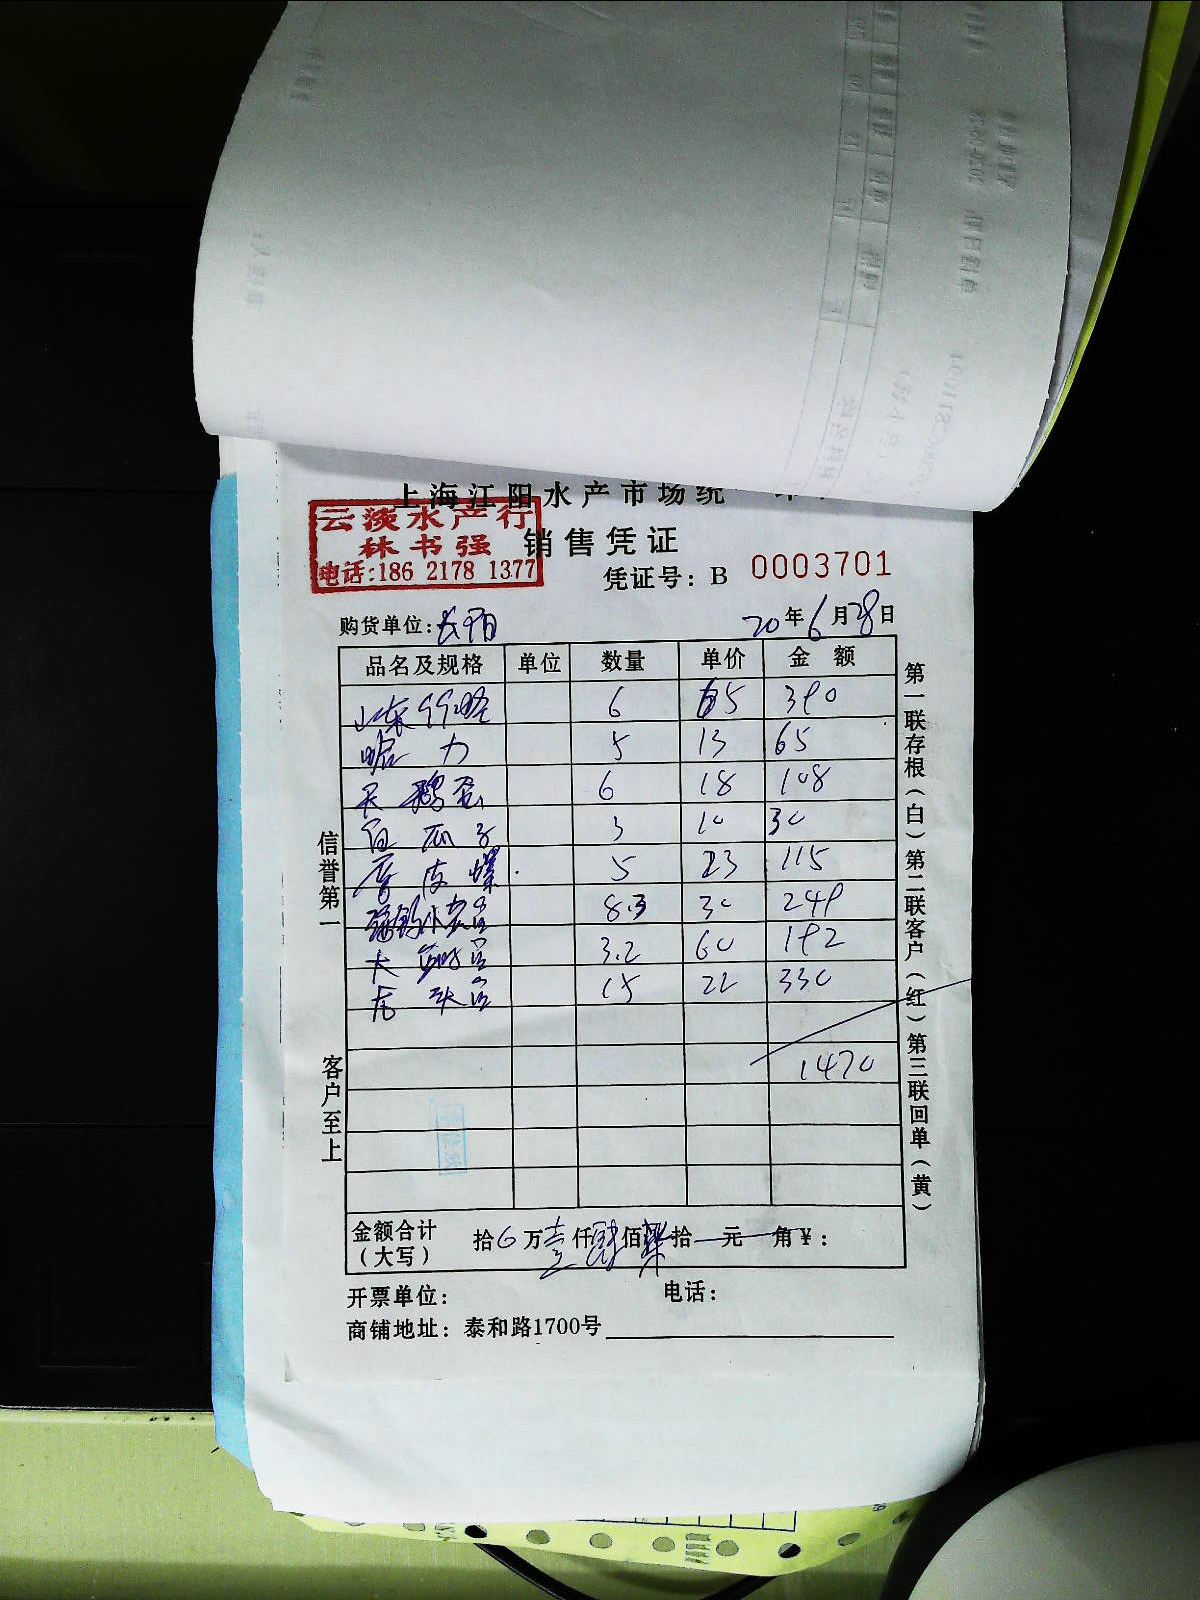 上海江阳水产市场统一印
云淡水产行
林书强
电话:186 2178 1377
销售凭证
凭证号: B 0003701
购货单位:
20年6月28日
品名及规格 单位 数量 单价 金额
山东 6 65 390
蛤力 5 13 65
天鹅蛋 6 18 108
白瓜子 3 10 30
香皮螺 5 23 115
8.3 30 249
大 3.2 60 192
龙头 15 22 330
1470
金额合计(大写) 拾 万壹仟肆佰柒拾 元 角¥:
开票单位: 电话:
商铺地址: 泰和路1700号
信誉第一
客户至上
第一联存根(白)第二联客户(红)第三联回单(黄)